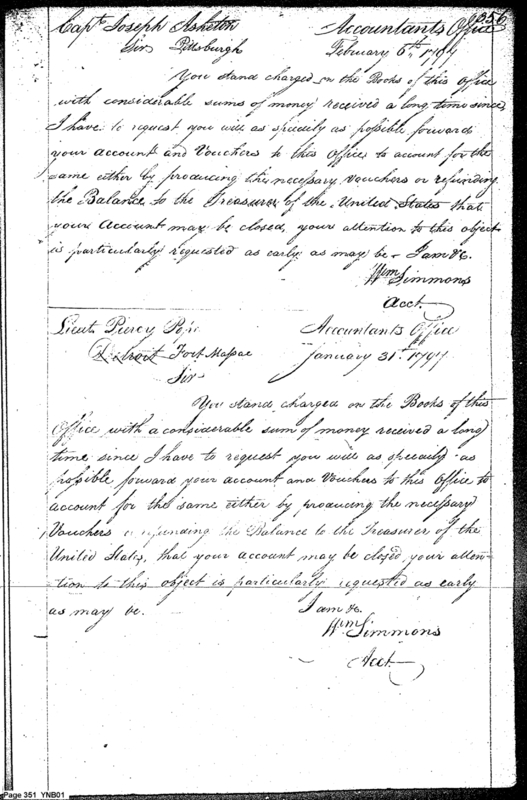 356
Capt. Joseph Asheton Accountants Office
Sir Pittsburgh February 6th 1797
You stand charged on the Books of this Office
with considerable sums of money received a long time since
I have to request you will as speedily as possible forward
your account and Vouchers to this Office, to account for the
same either by producing the necessary Vouchers or refunding
the Balance to the Treasurer of the United States that
your Account may be closed, your attention to this object
is particularly requested as early as may be - I am &c.
Wm Simmons
Acct.
Lieut Piercy Pope Accountants Office
Detroit Fort Massac January 31st 1797
Sir
You stand charged on the Books of this
Office with a considerable sum of money received a long
time since I have to request you will as speedily as
possible forward your account and Vouchers to this Office to
account for the same either by producing the necessary
Vouchers refunding the Balance to the Treasurer of the
United States, that your account may be closed, your atten-
tion to this object is particularly requested as early
as may be. I am &c.
Wm Simmons
Acct.
Page 351 YNB01